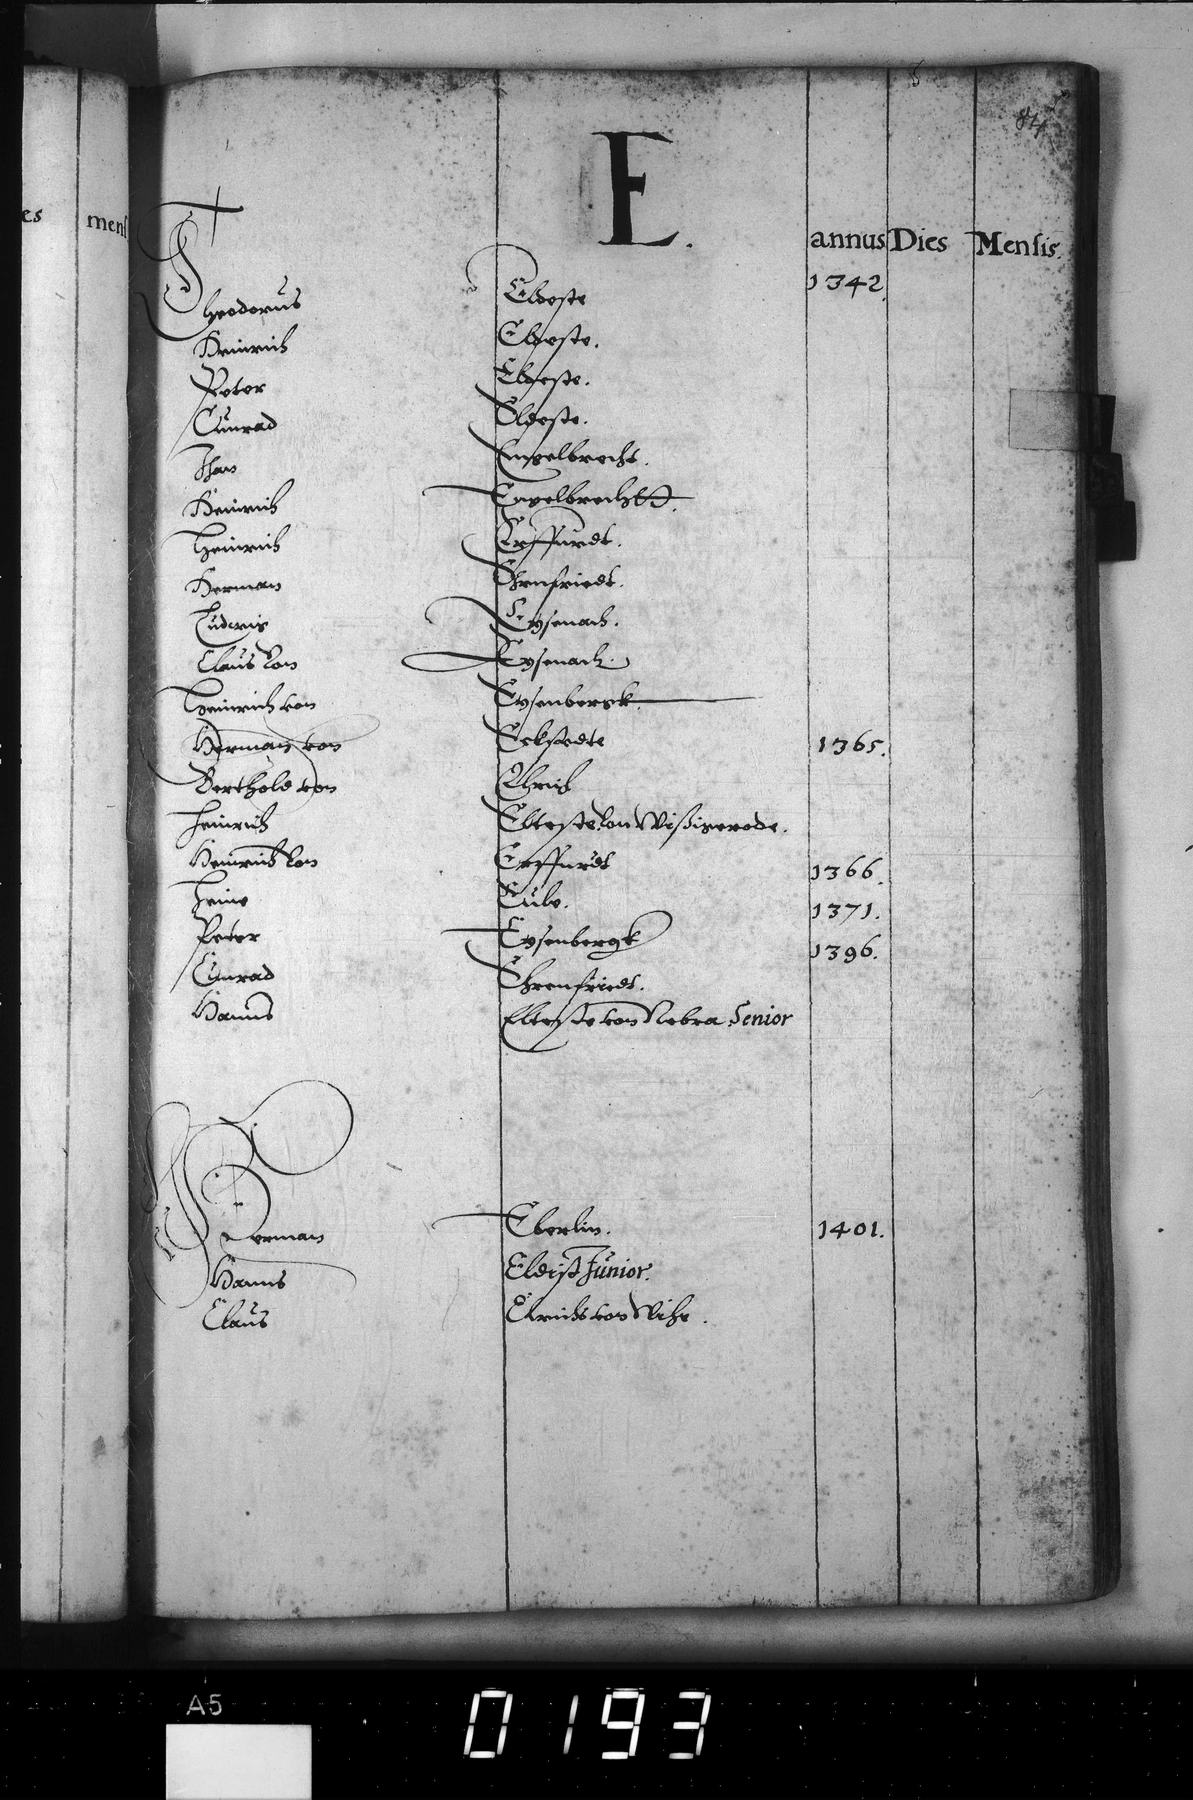 es mens
84
E.
annus Dies Mensis.
Theodorus Eldeste 1342.
Heinrich Eldeste.
Peter Eldeste.
Cunrad Eldeste.
Jhan Engelbrecht.
Heinrich Engelbrechtt.
Heinrich Erffurdt.
Herman Ehrnfriedt.
Ludwig Eysenach.
Claus von Eysenach.
Heinrich von Eysenbergk.
Herman von Eckstedte 1365.
Berthold von Elrich
Heinrich Elteste von Wißigerode.
Heinrich von Erffurdt 1366.
Heine Eule. 1371.
Peter Eysenbergk 1396.
Cunrad Ehrenfriedt.
Hanns Elteste von Nebra Senior
Herman Eberlin. 1401.
Hanns Eldist Junior.
Claus Elrichs von Wihe.
A5
0193